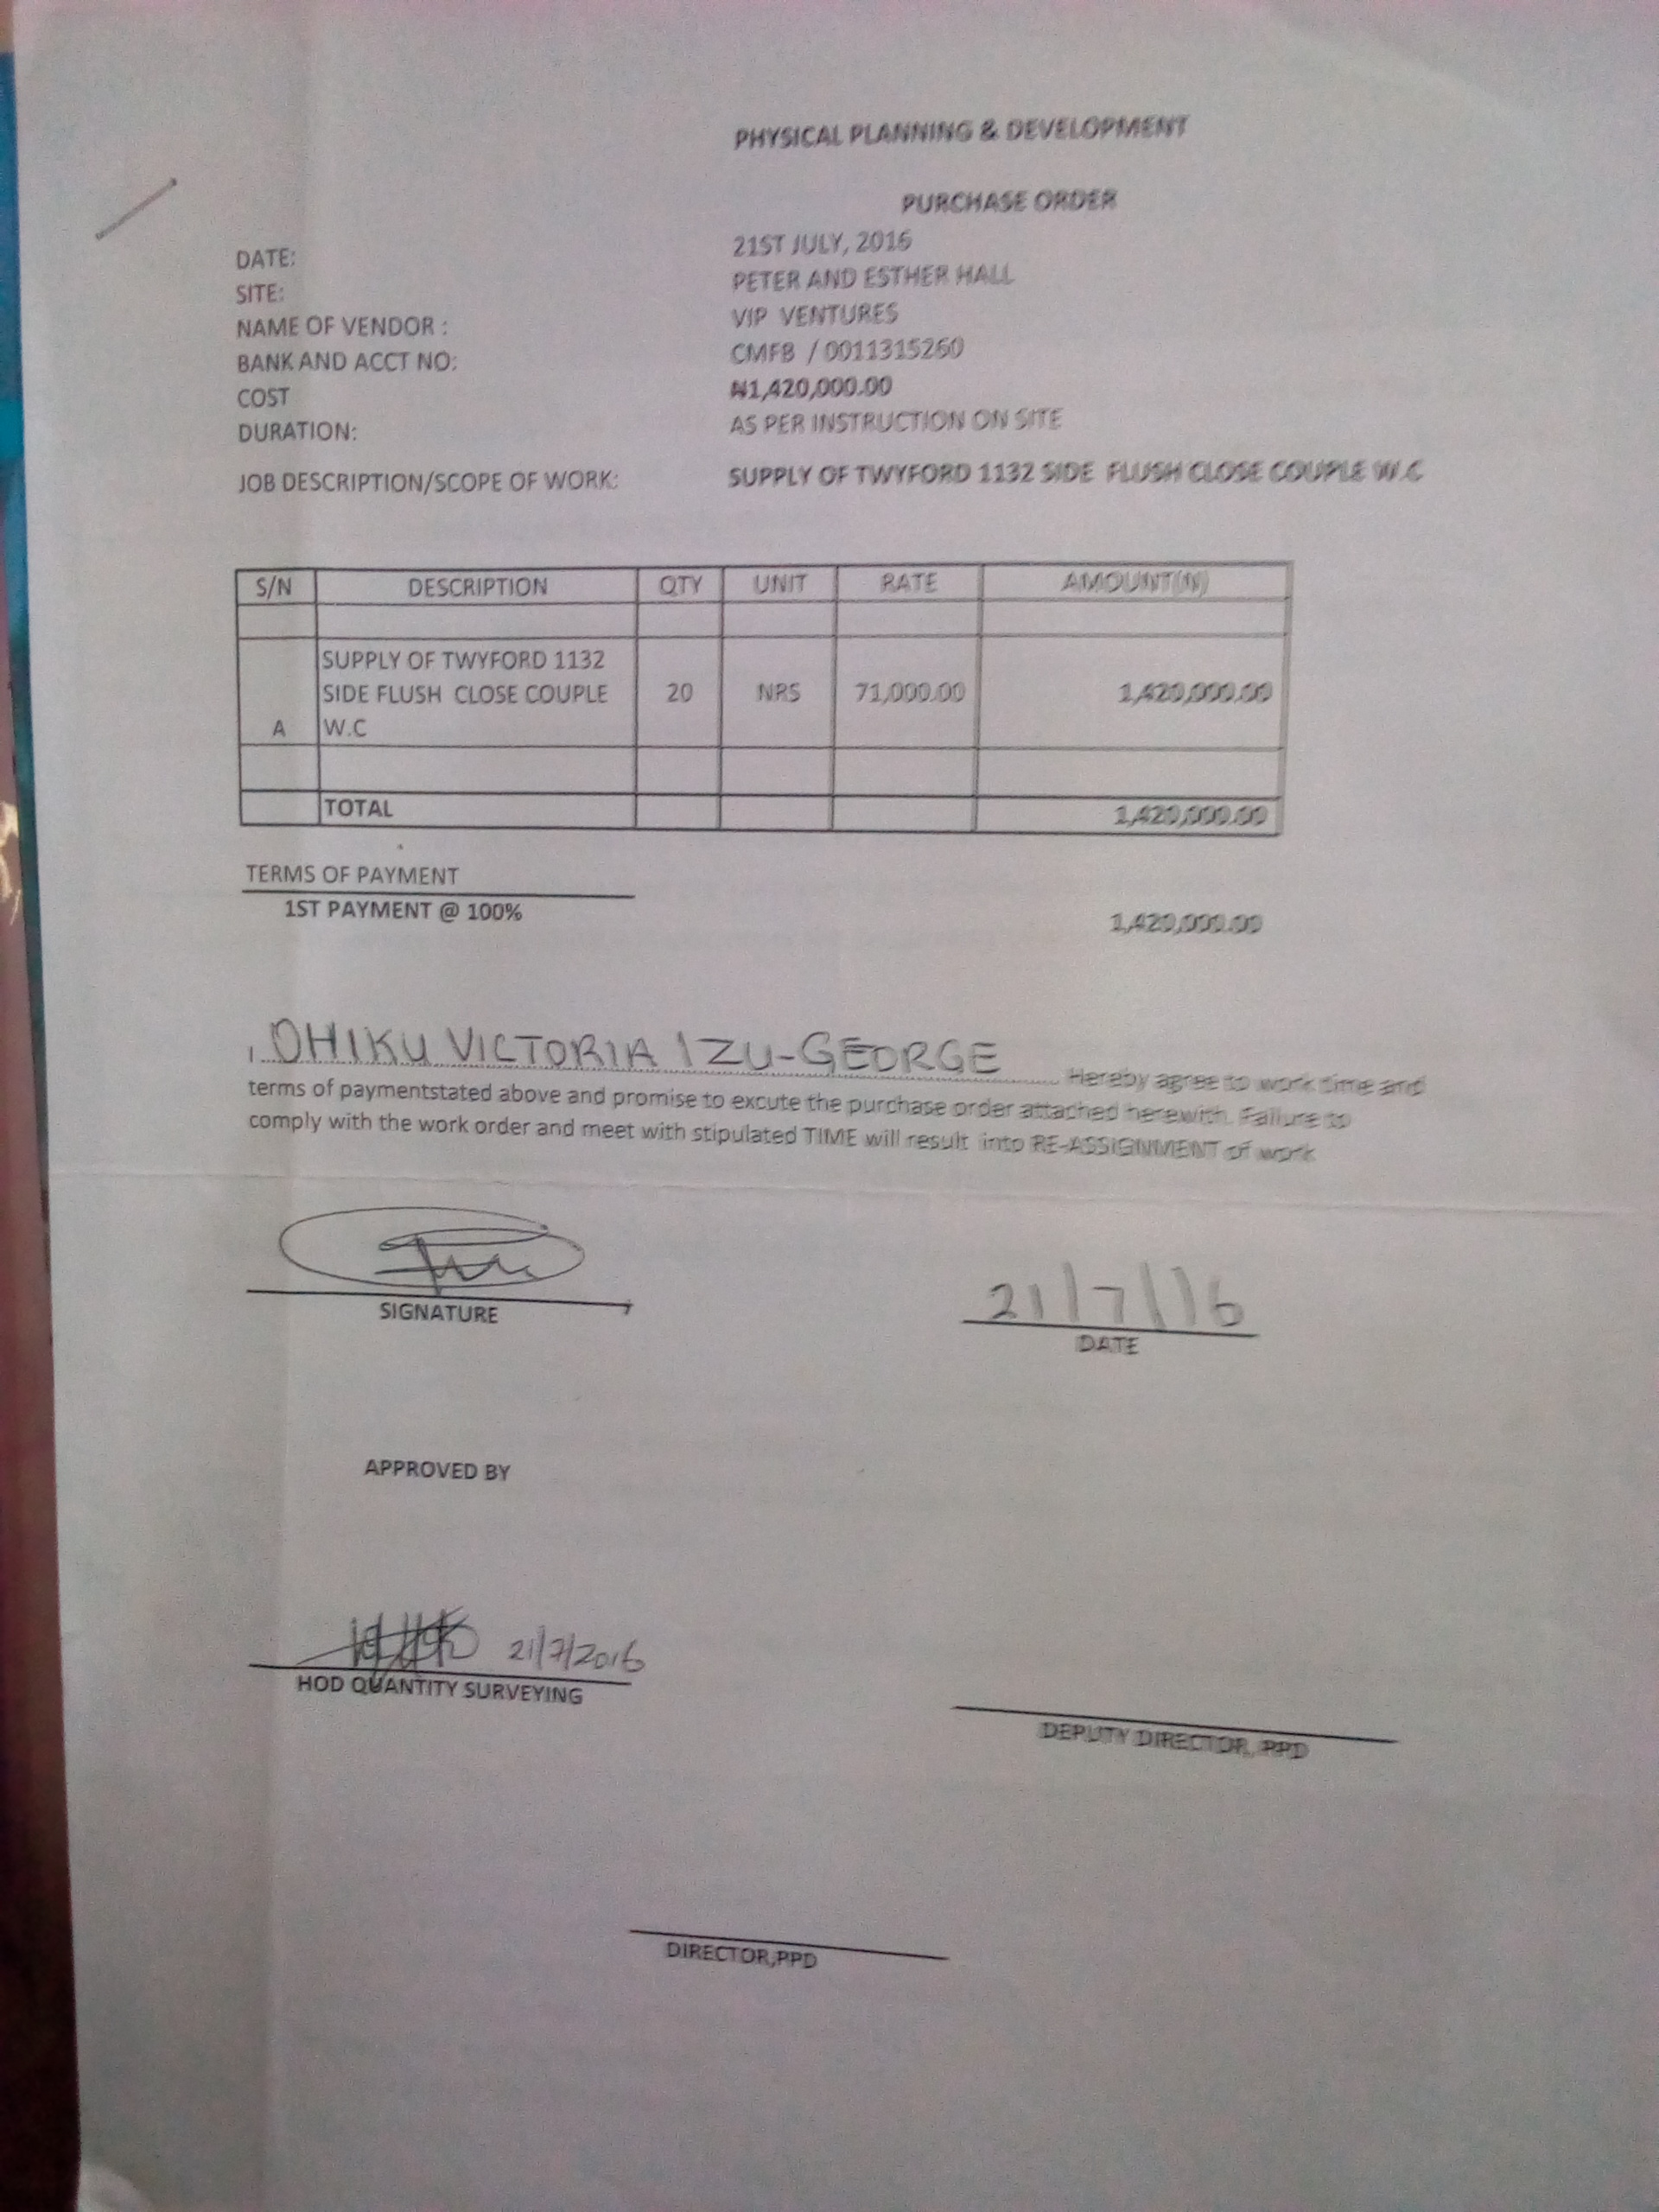 PHYSICAL PLANNING & DEVELOPMENT
PURCHASE ORDER
DATE: 21ST JULY, 2016
SITE: PETER AND ESTHER HALL
NAME OF VENDOR : VIP VENTURES
BANK AND ACCT NO: CMFB / 0011315260
COST ₦1,420,000.00
DURATION: AS PER INSTRUCTION ON SITE
JOB DESCRIPTION/SCOPE OF WORK: SUPPLY OF TWYFORD 1132 SIDE FLUSH CLOSE COUPLE W.C
S/N DESCRIPTION QTY UNIT RATE AMOUNT(N)
SUPPLY OF TWYFORD 1132
SIDE FLUSH CLOSE COUPLE 20 NRS 71,000.00 1,420,000.00
A W.C
TOTAL 1,420,000.00
TERMS OF PAYMENT
1ST PAYMENT @ 100% 1,420,000.00
I OHIKU VICTORIA IZU-GEORGE Hereby agree to work time and
terms of paymentstated above and promise to excute the purchase order attached herewith. Failure to
comply with the work order and meet with stipulated TIME will result into RE-ASSIGNMENT of work
21/7/16
SIGNATURE DATE
APPROVED BY
21/7/2016
HOD QUANTITY SURVEYING
DEPUTY DIRECTOR, PPD
DIRECTOR,PPD